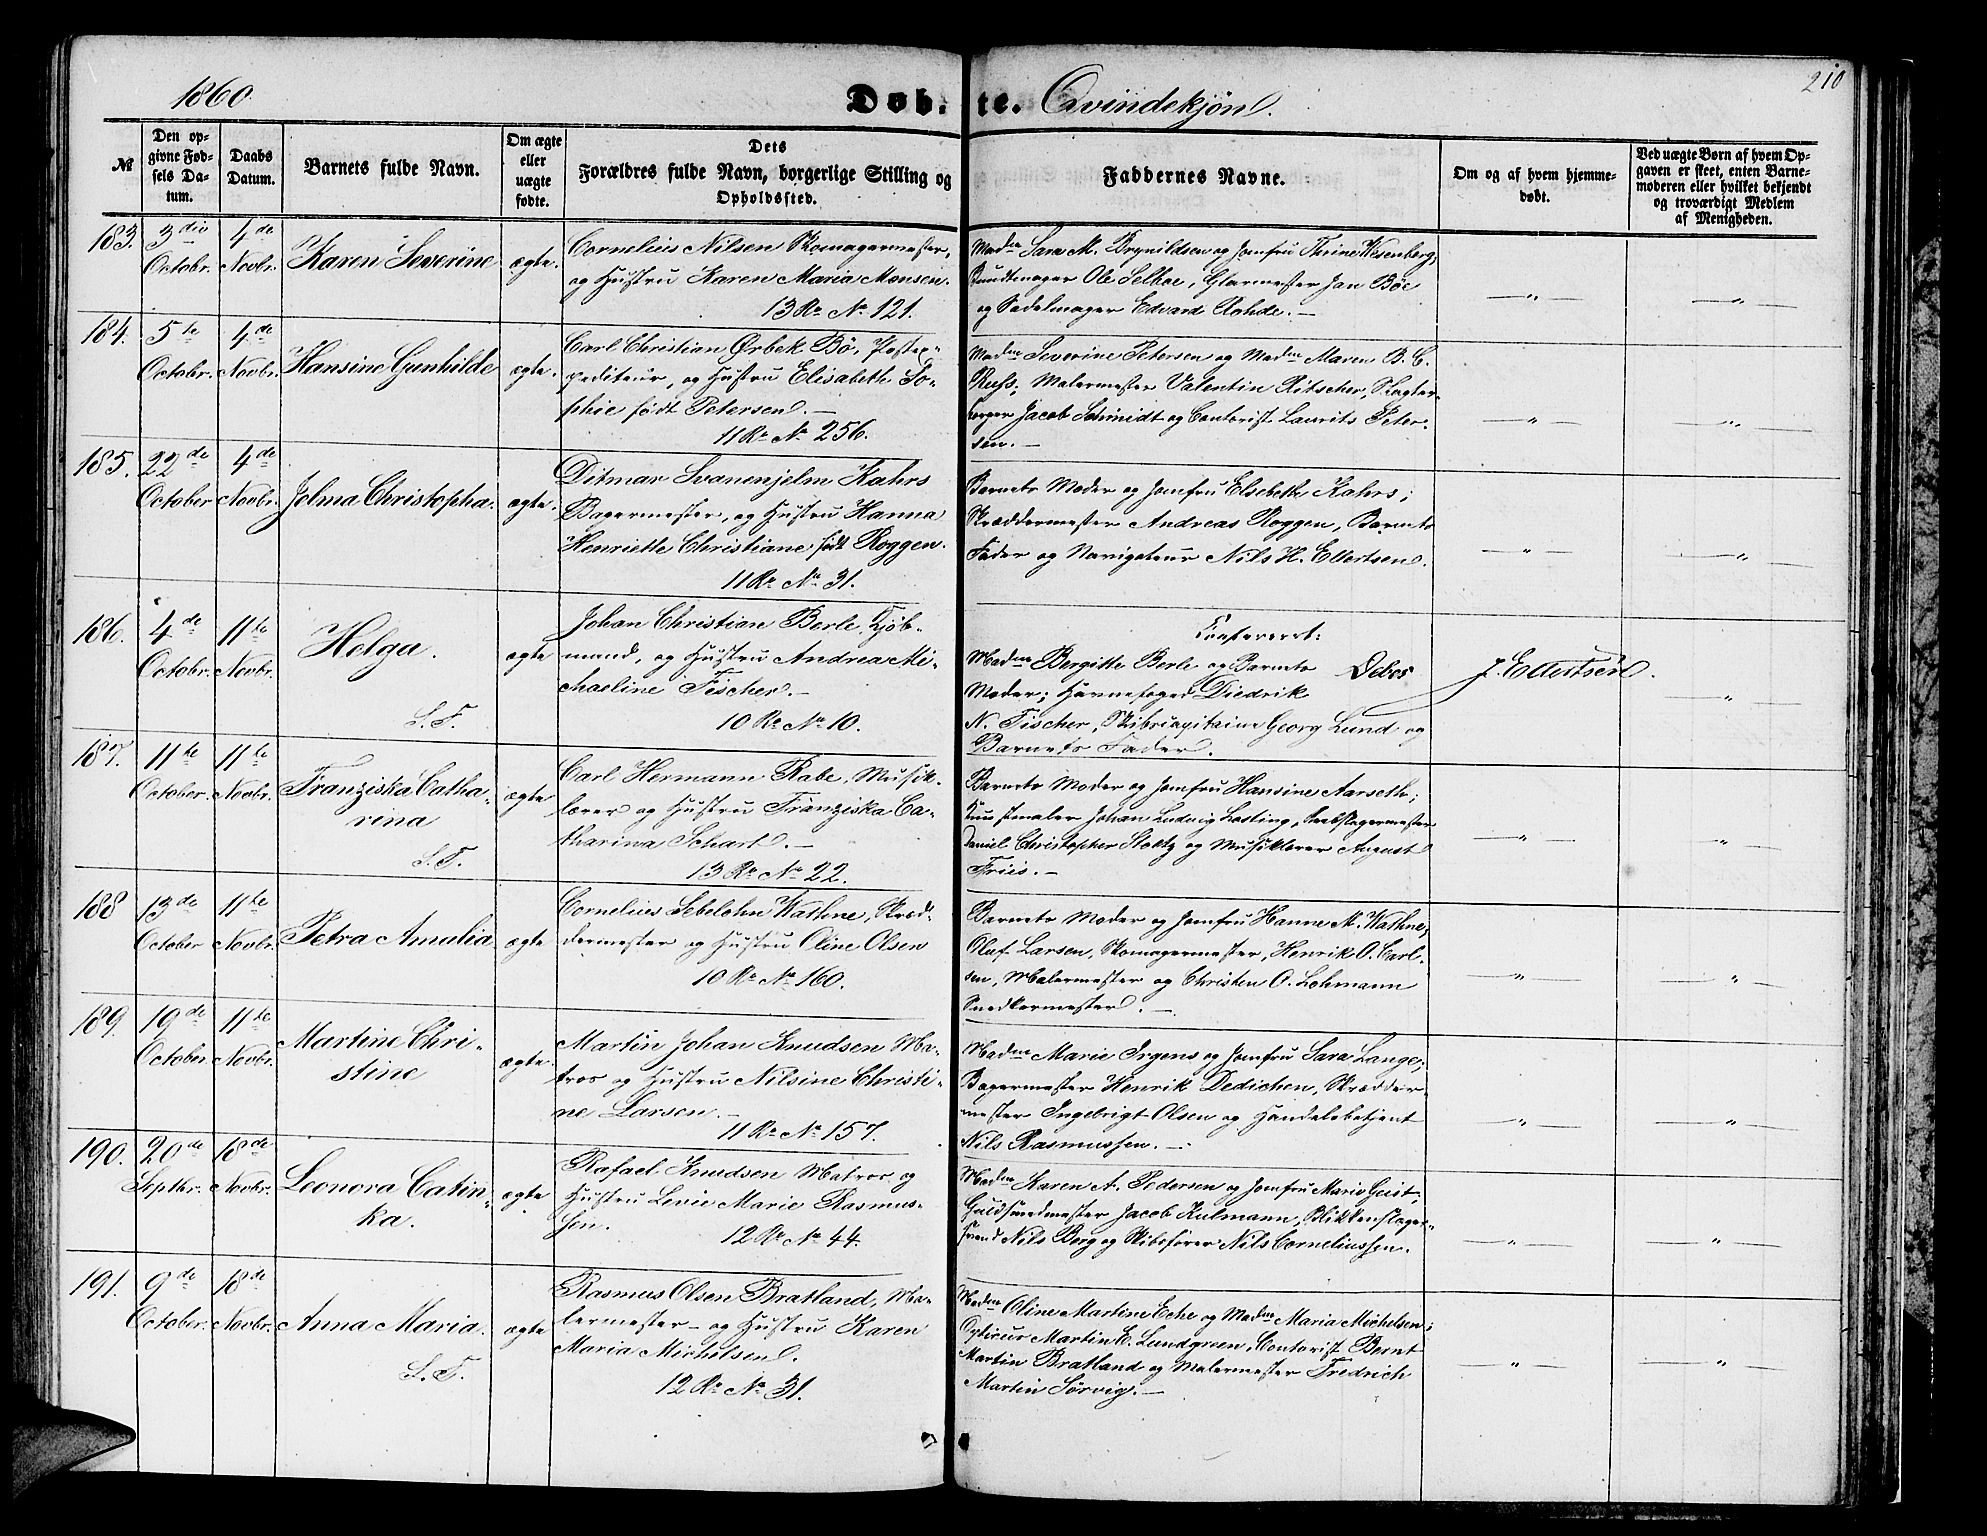 1860
Døb-te. Qvindekjøn.
210
№
Den op-
givne Fød-
sels Da-
tum.
Daabs
Datum.
Barnets fulde Navn.
Om ægte
eller
uægte
fødte.
Dets
Forældres fulde Navn, borgerlige Stilling og
Opholdssted.
Faddernes Navne.
Om og af hvem hjemme-
døbt.
Ved uægte Børn af hvem Op-
gaven er skeet, enten Barne-
moderen eller hvilket bekjendt
og troværdigt Medlem
af Menigheden.
183. 3die Octobr. 4de Novbr. Karen Severine ægte.
Cornelius Nilsen Skomagermester,
og Hustru Karen Maria Monsen.
13 R. No 121.
Madm Sara M. Brynildsen og Jomfru Thrine Wesenberg,
Bundtmager Ole Selboe, Glarmester Jan Böe
og Sadelmager Edvard Rohde.—
184. 5te Octobr. 4de Novbr. Hansine Gunhilde ægte.
Carl Christian Ørbek Bö, Postex-
pediteur, og Hustru Elisabeth So-
phie født Petersen.—
11 R. No 256.
Madm Severine Petersen og Madm Maren B. C.
Russ, Malermester Valentin Ritscher, Slagter-
borger Jacob Schmidt og Contorist Laurits Peter-
sen.—
185. 22de October 4de Novbr. Jolma Christopha. ægte.
Ditmar Svanenjelm Kahrs
Bagermester, og Hustru Hanna
Henriette Christiane født Roggen.
11 R. No 31.
Barnets Moder og Jomfru Elsebeth Kahrs;
Skræddermester Andreas Roggen, Barnets
Fader og Navigateur Nils H. Ellertsen.
186. 4de Octobr. 11te Novbr. Helga. ægte
S. F.
Johan Christian Berle, Kjöb-
mand, og Hustru Andrea Mi-
chaeline Fischer.—
10 R. No 10.
Confereret:
Madm Bergitte Berle og Barnets Debes J. Ellertsen.
Moder; Havnefoged Diedrik
N. Fischer, Skibscapitaine Georg Lund og
Barnets Fader.
187. 11te October. 11te Novbr. Franziska Catha-
rina ægte
S. F.
Carl Hermann Rabe, Musik-
lærer og Hustru Franziska Ca-
tharina Schart.—
13 R. No 22.
Barnets Moder og Jomfru Hansine Aarseth;
Kunstmaler Johan Ludvig Losting, Reebslagermester
Daniel Christopher Stoltz og Musiklærer August
Friis.—
188 13de October 11te Novbr. Petra Amalia ægte
Cornelius Lebelohn Wathne, Skræd-
dermester og Hustru Oline Olsen
10 R. No 160.
Barnets Moder og Jomfru Hanne M. Wathne,
Oluf Larsen, Skomagermester, Henrik O. Carl-
sen, Malermester og Christen O. Lohmann
Snedkermester.—
189. 19de October 11te Novbr. Martine Chri-
stine ægte.
Martin Johan Knudsen Ma-
tros og Hustru Nilsine Christi-
ne Larsen.—
11 R. No 157.
Madm Marie Irgens og Jomfru Sara Lange;
Bagermester Henrik Dedichen, Skrædder-
mester Ingebrigt Olsen og Handelsbetjent
Nils Rasmussen.—
190. 20de Septbr. 18de Novbr. Leonora Catin-
ka. ægte
Rafael Knudsen Matros og
Hustru Levie Marie Rasmus-
sen.
12 R. No 44.
Madm Karen A. Pedersen og Jomfru Marie Geist,
Guldsmedmester Jacob Kulmann, Blikkenslager-
svend Nils Berg og Skibsfører Nils Corneliussen.
191. 9de October. 18de Novbr. Anna Maria. ægte
S. F.
Rasmus Olsen Bratland, Ma-
lermester og Hustru Karen
Maria Michelsen.
12 R. No 31.
Madm Oline Martine Eche og Madm Maria Michelsen;
Opticus Martin E. Lundgreen, Contorist Bernt
Martin Bratland og Malermester Fredrich
Martin Sörvig.—